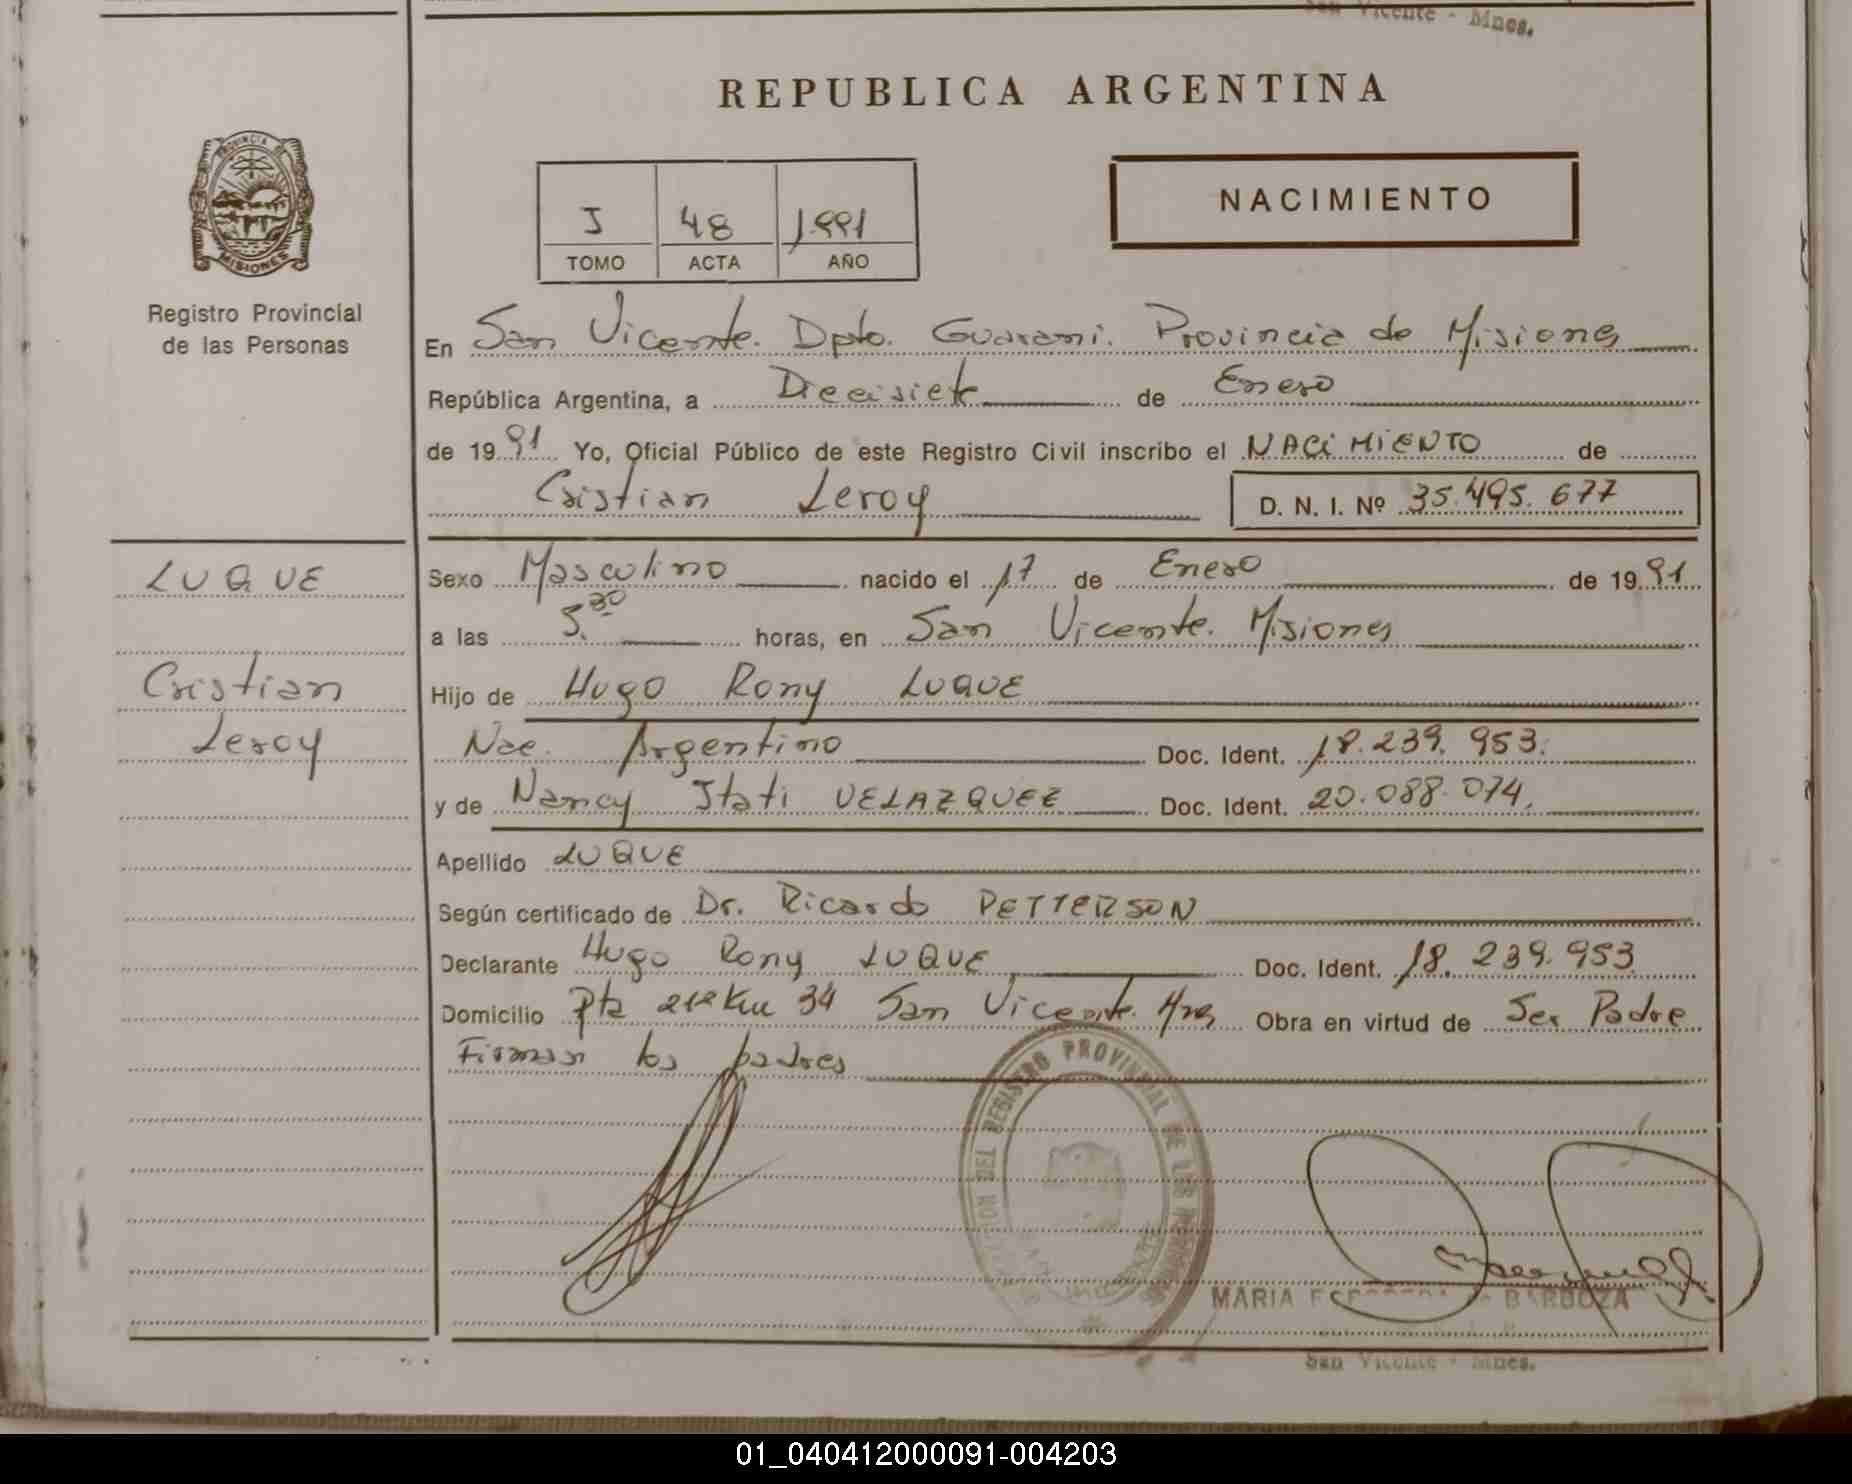 San Vicente - Mnes.
REPUBLICA ARGENTINA
PROVINCIA DE
MISIONES
Registro Provincial
de las Personas
J 48 1991
TOMO ACTA AÑO
NACIMIENTO
En San Vicente. Dpto. Guarani. Provincia de Misiones
República Argentina, a Diecisiete de Enero
de 1991 Yo, Oficial Público de este Registro Civil inscribo el NACIMIENTO de
Cristian Leroy D. N. I. Nº 35.495.677
LUQUE
Cristian
Leroy
Sexo Masculino nacido el 17 de Enero de 1991
a las 5.30 horas, en San Vicente. Misiones
Hijo de Hugo Rony LUQUE
Nac. Argentino Doc. Ident. 18.239.953.
y de Nancy Itati VELAZQUEZ Doc. Ident. 20.088.074.
Apellido LUQUE
Según certificado de Dr. Ricardo PETTERSON
Declarante Hugo Rony LUQUE Doc. Ident. 18.239.953
Domicilio Km 34 San Vicente. Mnes Obra en virtud de Ser Padre
Firman los padres
DEL REGISTRO PROVINCIAL DE LAS PERSONAS
MARIA BARBOZA
San Vicente - Mnes.
01_040412000091-004203